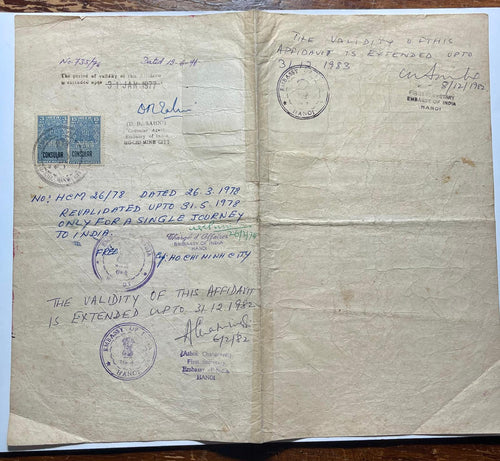 No. 733/76 Dated 15-6-76
The period of validity of this
is extended upto 31 JAN 1977
Consular Agent
Embassy of India
HO-CHI-MINH CITY
CONSULAR CONSULAR
NO: HCM 26/78 DATED 26.3.1978
REVALIDATED UPTO 31.5.1978
ONLY FOR A SINGLE JOURNEY
TO INDIA.
Charge d'Affaires
EMBASSY OF INDIA
HANOI
FREE
HO CHI MINH CITY
THE VALIDITY OF THIS AFFIDAVIT
IS EXTENDED UPTO 31.12.1982
6/2/82
EMBASSY OF INDIA
HANOI
First Secretary
Embassy of India
HANOI
THE VALIDITY OF THIS
AFFIDAVIT IS EXTENDED UPTO
31.12.1983
8/12/1982
EMBASSY OF INDIA
HANOI
FIRST SECRETARY
EMBASSY OF INDIA
HANOI